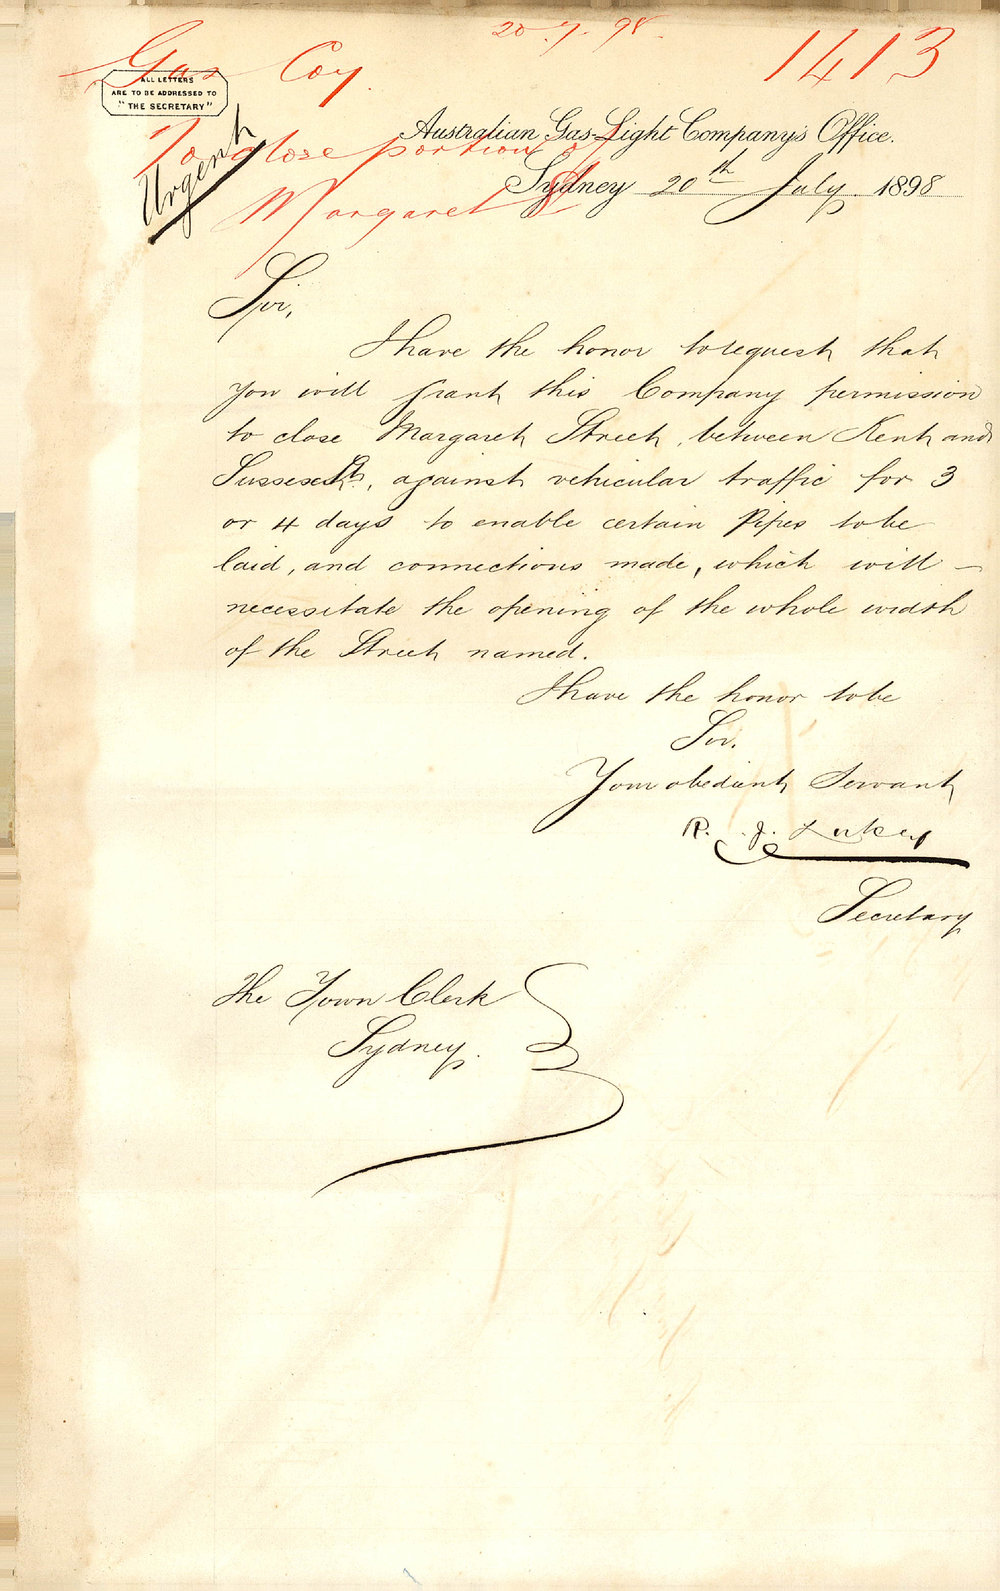 20.7.98.
Gas Coy. 1413
ALL LETTERS
ARE TO BE ADDRESSED TO
"THE SECRETARY"
Urgent
To close portion of
Margaret St
Australian Gas-Light Company's Office.
Sydney 20th July 1898
Sir,
I have the honor to request that
you will grant this Company permission
to close Margaret Street, between Kent and
Sussex Sts., against vehicular traffic for 3
or 4 days to enable certain Pipes to be
laid, and connections made, which will –
necessitate the opening of the whole width
of the Street named.
I have the honor to be
Sir.
Your obedient Servant
R. J. Lukey
Secretary
The Town Clerk
Sydney.